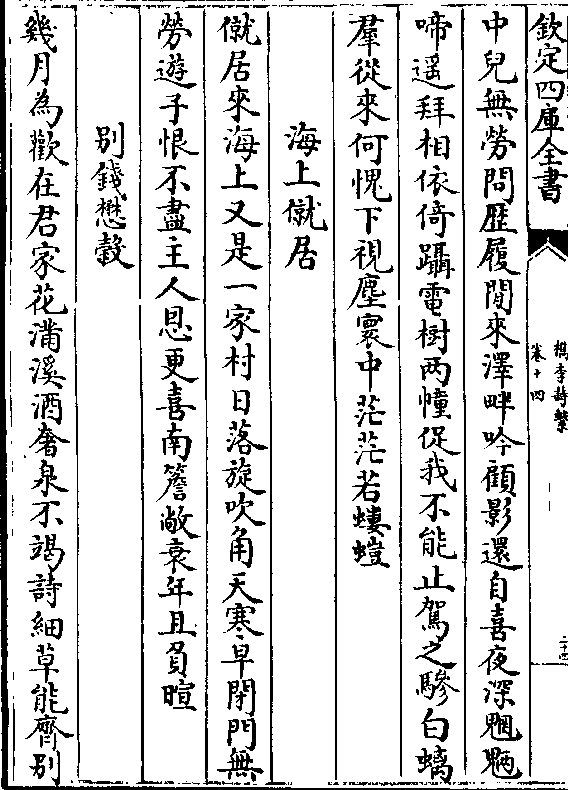 欽定四庫全書
檇李詩繫
卷十四
二十四
中兒無勞問歴履閒來澤畔吟顧影還自喜夜深魍魎
啼遥拜相依倚躡電樹兩幢促我不能止駕之驂白螭
羣從來何愧下視塵寰中茫茫若螻螘
海上僦居
僦居來海上又是一家村日落旋吹角天寒早閉門無
勞遊子恨不盡主人恩更喜南簷敞衰年且負暄
别錢懋穀
幾月為歡在君家花滿溪酒奢泉不竭詩細草能齊别